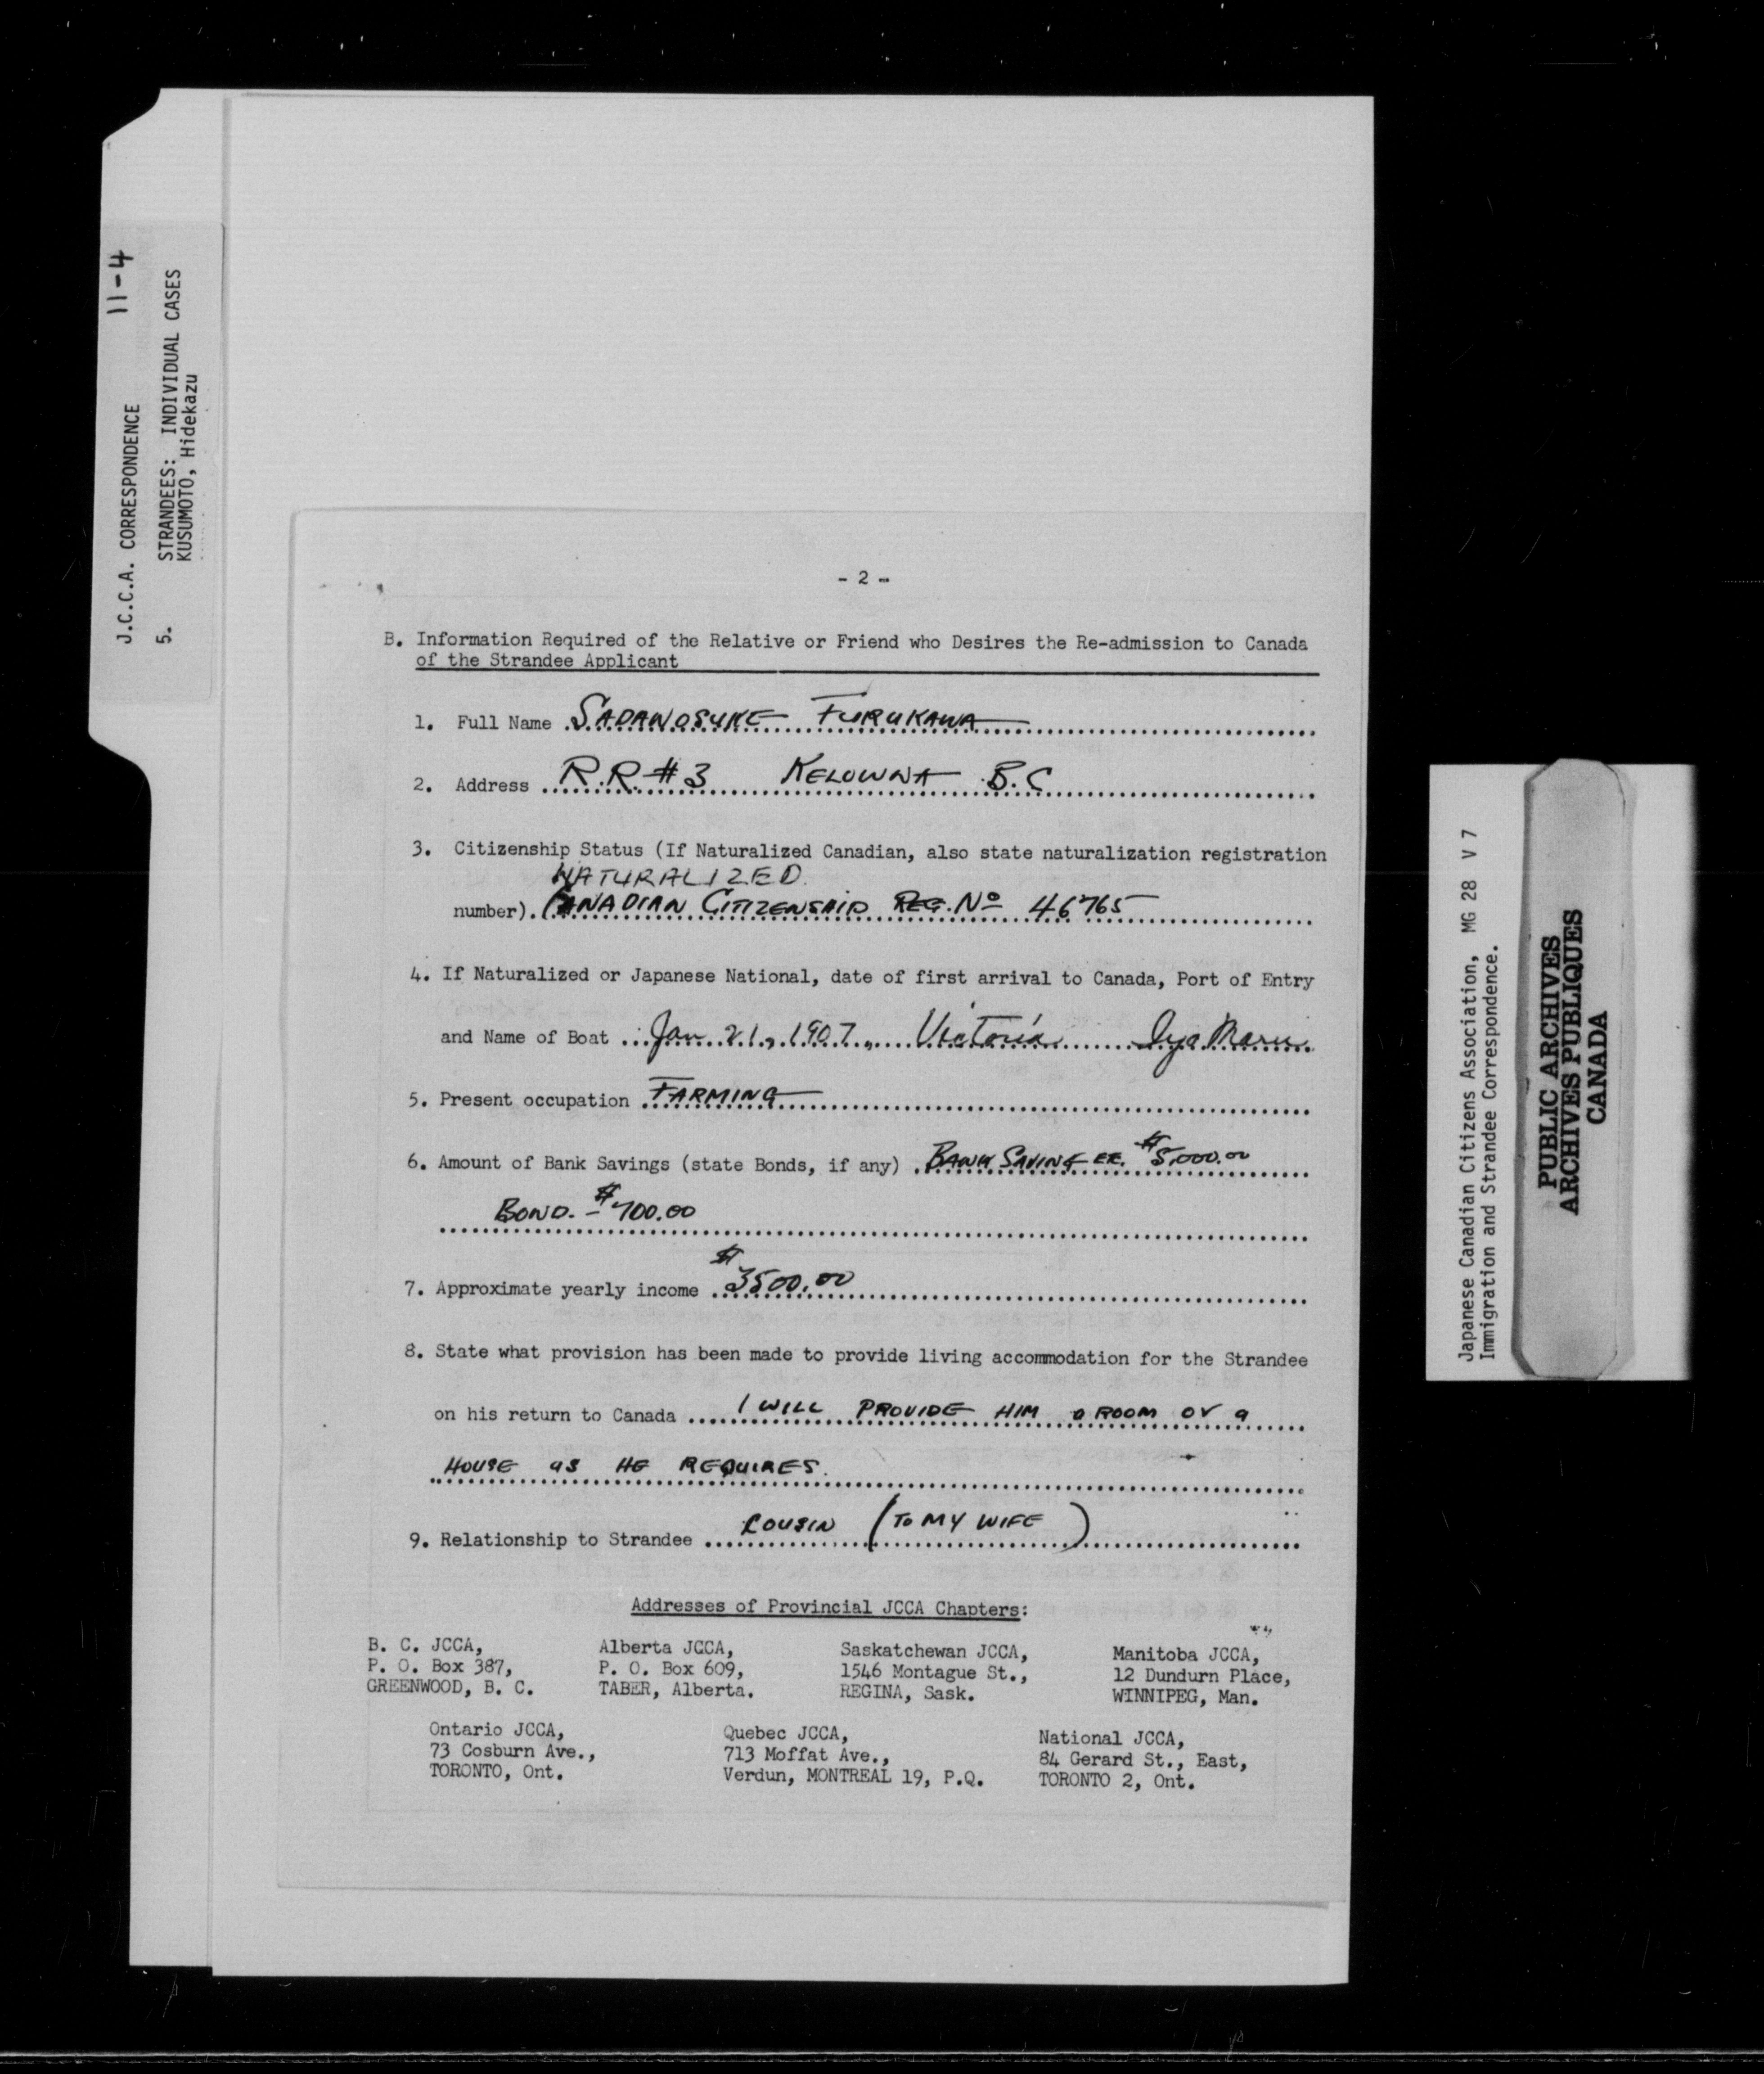 J.C.C.A. CORRESPONDENCE 11-4
5. STRANDEES: INDIVIDUAL CASES
KUSUMOTO, Hidekazu
- 2 -
B. Information Required of the Relative or Friend who Desires the Re-admission to Canada
of the Strandee Applicant
1. Full Name SADANOSUKE FURUKAWA
2. Address R.R. #3 KELOWNA B.C
3. Citizenship Status (If Naturalized Canadian, also state naturalization registration
NATURALIZED
number). CANADIAN CITIZENSHIP REG. No 46765
4. If Naturalized or Japanese National, date of first arrival to Canada, Port of Entry
and Name of Boat Jan 21, 1907, Victoria Iyo Maru
5. Present occupation FARMING
6. Amount of Bank Savings (state Bonds, if any) BANK SAVING $5,000.00
BOND. - $700.00
7. Approximate yearly income $3500.00
8. State what provision has been made to provide living accommodation for the Strandee
on his return to Canada I WILL PROVIDE HIM a ROOM or a
HOUSE as HE REQUIRES.
9. Relationship to Strandee COUSIN (TO MY WIFE)
Addresses of Provincial JCCA Chapters:
B. C. JCCA, Alberta JCCA, Saskatchewan JCCA, Manitoba JCCA,
P. O. Box 387, P. O. Box 609, 1546 Montague St., 12 Dundurn Place,
GREENWOOD, B. C. TABER, Alberta. REGINA, Sask. WINNIPEG, Man.
Ontario JCCA, Quebec JCCA, National JCCA,
73 Cosburn Ave., 713 Moffat Ave., 84 Gerard St., East,
TORONTO, Ont. Verdun, MONTREAL 19, P.Q. TORONTO 2, Ont.
Japanese Canadian Citizens Association, MG 28 V 7
Immigration and Strandee Correspondence.
PUBLIC ARCHIVES
ARCHIVES PUBLIQUES
CANADA